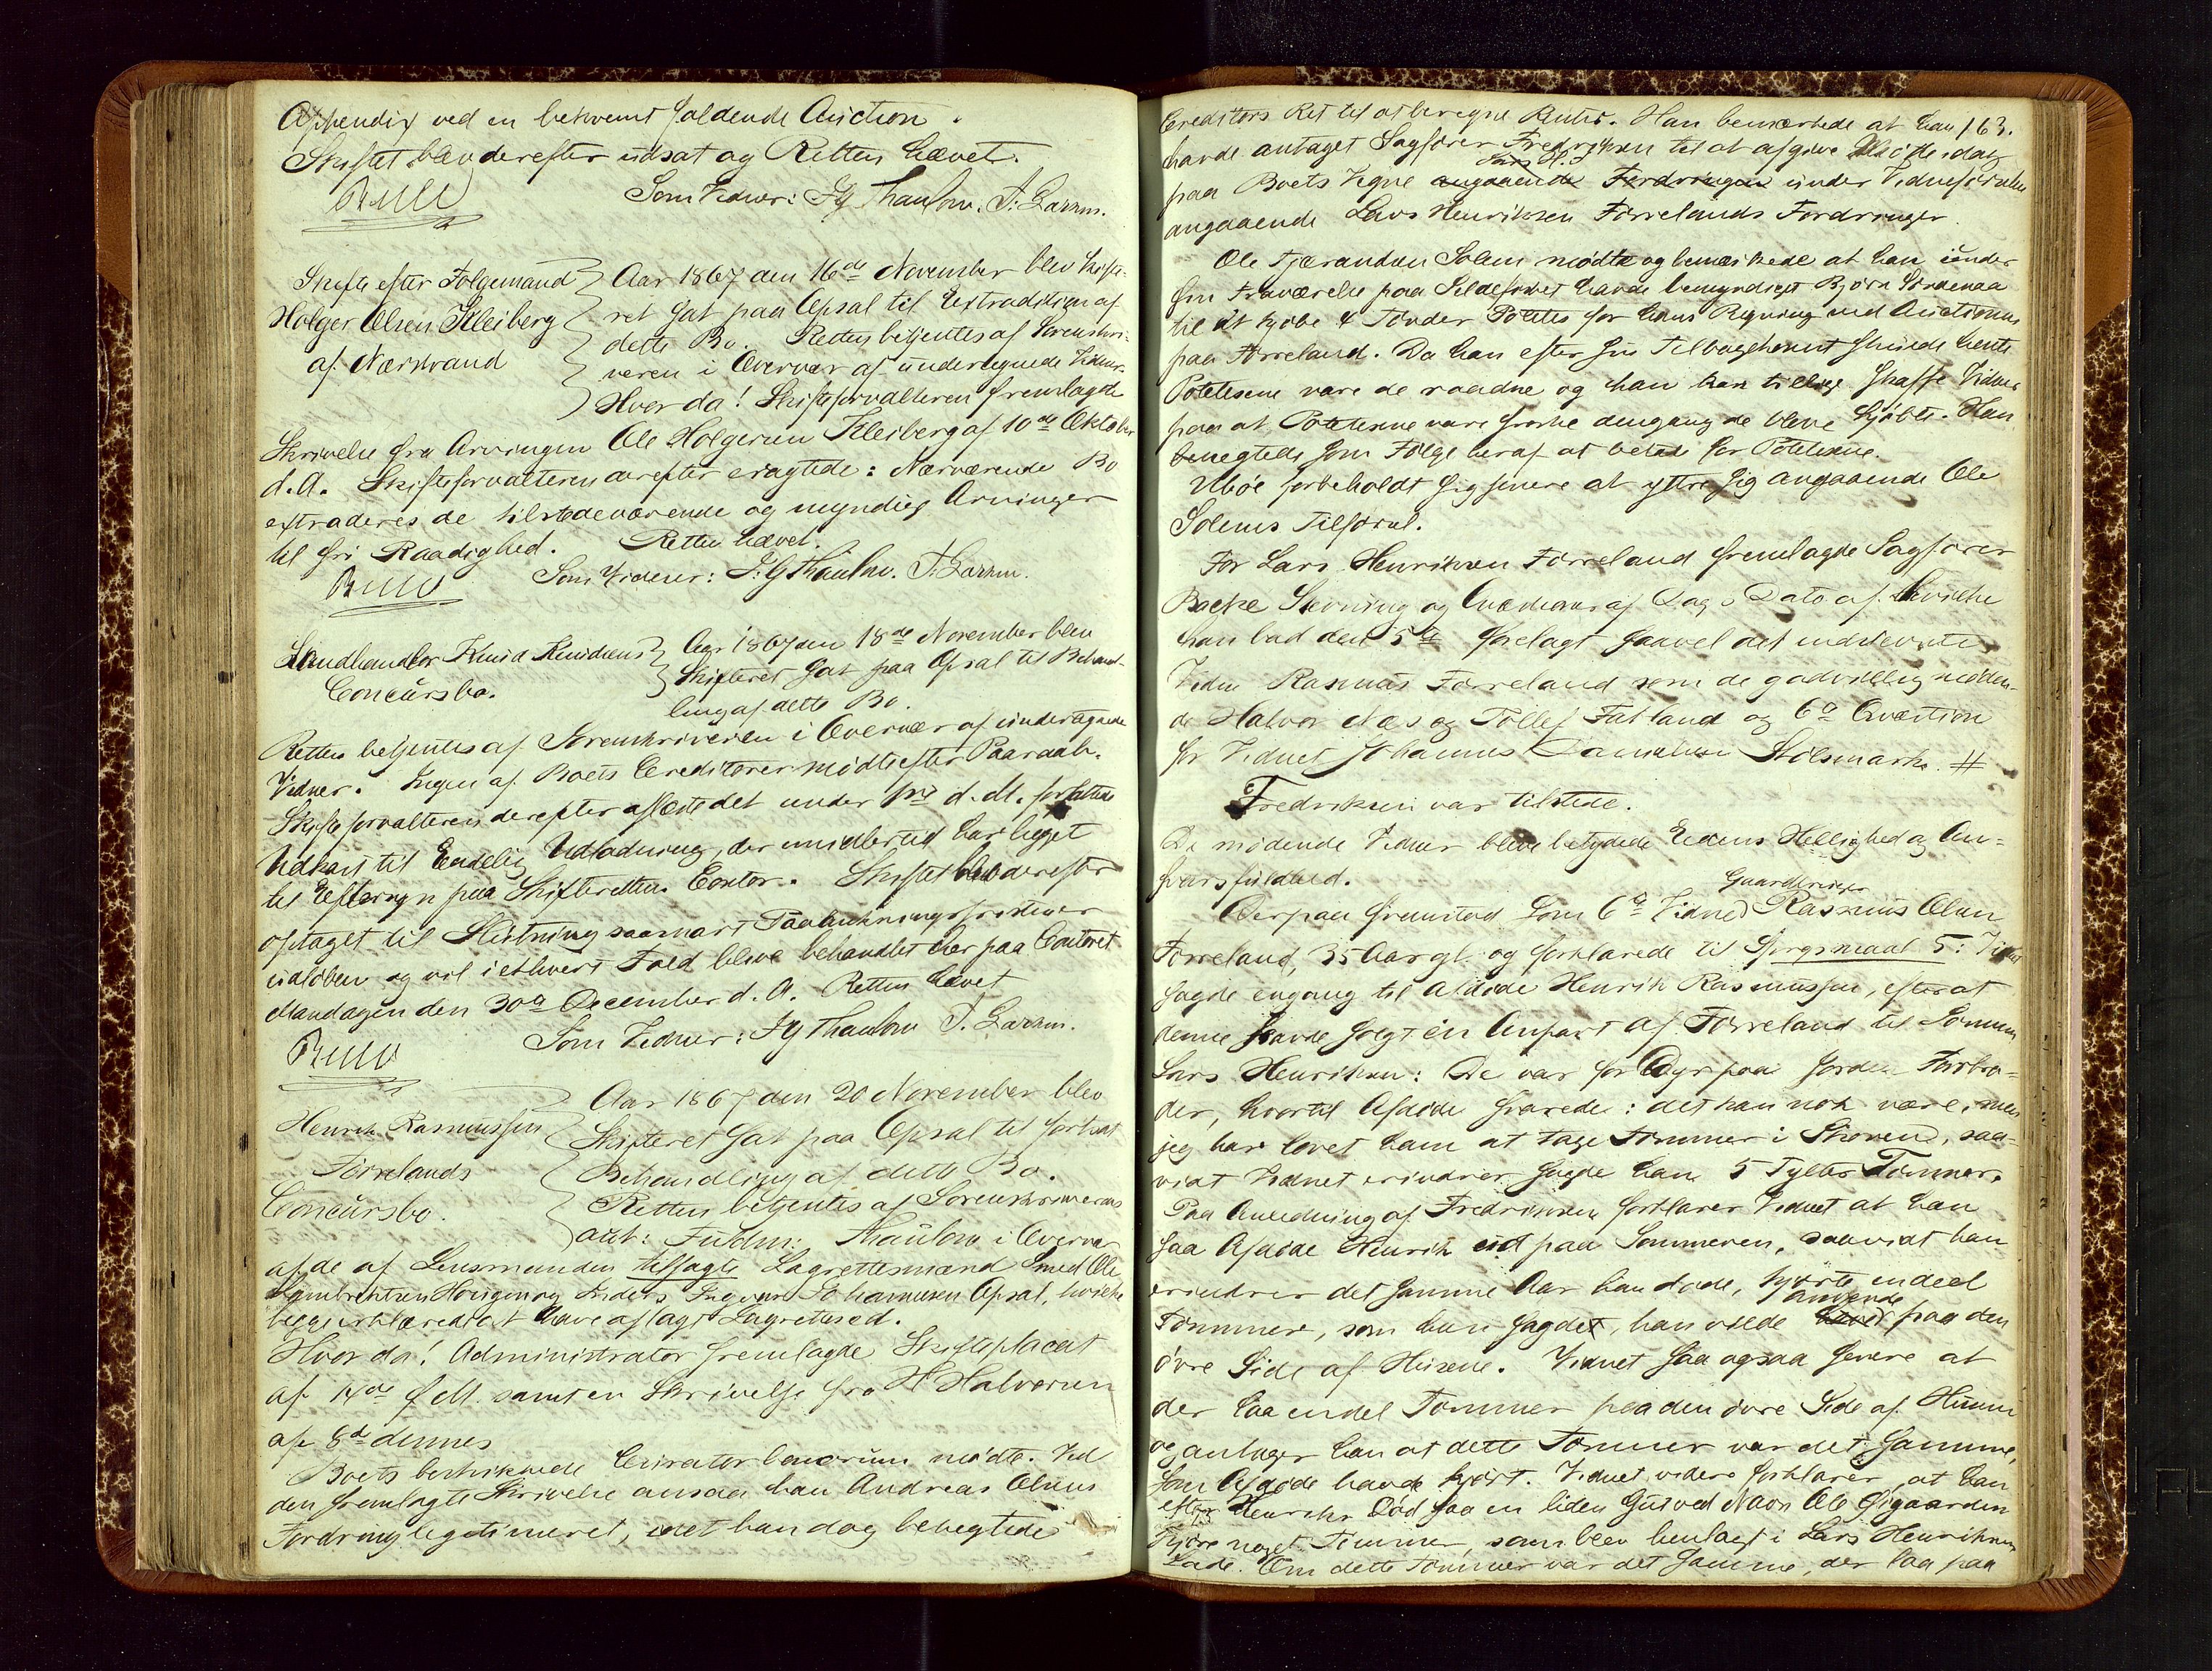 Appendix ved en bekvemt faldende Auction.
Skiftet blev derefter udsat og Retten hævet.
Bull
Som Vidner: J G Thaulow. T. Larsen.
Skifte efter Følgemand
Holger Olsen Kleiberg
af Nærstrand
Aar 1867 den 16de November blev Skifte-
ret sat paa Opsal til Extradition af
dette Bo. Retten betjentes af Sorenskri-
veren i Overvær af undertegnede Vidner.
Hvor da! Skifteforvalteren fremlagde
Skrivelse fra Arvingen Ole Holgersen Kleiberg af 10de Oktober
d. A. Skifteforvalteren derefter eragtede: Nærværende Bo
extraderes de tilstedeværende og myndige Arvinger
til fri Raadighed. Retten hævet.
Bull
Som Vidner: J. G Thaulow. T. Larsen.
Landhandler Knud Knudsens
Concursbo.
Aar 1867 den 18de November blev
Skifteret sat paa Opsal til Behand-
ling af dette Bo.
Retten betjentes af Sorenskriveren i Overvær af undertegnede
Vidner. Ingen af Boets Creditorer mødte efter Paaraab.
Skifteforvalteren derefter aflæste det under d. M. forfattede
Udkast til Endelig Udlodning, der imidlertid har ligget
til Eftersyn paa Skifterettens Contor. Skiftet blev derefter
optaget til Slutning saasnart Paaankningsfristen er
udløben og vil i ethvert Fald blive behandlet her paa Contoret
Mandagen den 30te December d. A. Retten hævet
Bull
Som Vidner: J G Thaulow T. Larsen.
Henrik Rasmussen
Førrelands
Concursbo.
Aar 1867 den 20 November blev
Skifteret sat paa Opsal til fortsat
Behandling af dette Bo.
Retten betjentes af Sorenskriverens
aut: Fuldm: Thaulow i Overvær
af de af Lensmanden tilsagte Lagrettesmænd Smed Ole
Lambrechtsen Haugen og Anders Ingvar Johannesen Opsal, hvilke
begge erklærede at have aflagt Lagretteseed.
Hvor da! Administrator fremlagde Skifteplacat
af 14de f. M. samt en Skrivelse fra H Halvorsen
af 8de dennes
Boets beskikkede Curator bonorum mødte. Ved
den fremlagte Skrivelse ansaa han Andreas Olsens
Fordring legitimeret, idet han dog benegtede
163.
Creditors Ret til at beregne Renter. Han bemærkede at han
havde antaget Sagfører Fredriksen til at afgive Møde idag
paa Boets Vegne angaaende Fordringen under Vidneførselen
angaaende Lars Henriksen Førrelands Fordringer.
Ole Tjerandsen Solem mødte og bemærkede at han under
sin Fraværelse paa Sildefisket havde bemyndiget Bjørn
til at kjøbe 4 Tønder Potetes for hans Regning ved Auctionen
paa Førreland. Da han efter sin Tilbagekomst skulde hente
Potetesene vare de raadne og han kan tillige skaffe Vidner
paa at Potetesene vare friske dengang de bleve kjøbte. Han
benegtede som Følge heraf at betale for Potetesene.
Ubøe forbeholdt sig senere at yttre sig angaaende Ole
Solems Tilførsel.
For Lars Henriksen Førreland fremlagde Sagfører
Backe Stevning og af Dags Dato af hvilke
han bad den 5te forelagt saavel det indstevnte
Vidne Rasmus Førreland som de godvillig møden-
de Halvor Næs og Tollef Fatland og 6te Qvæstion
for Vidnet Johannes Danielsen Stølsmark. #
Fredriksen var tilstede.
De mødende Vidner bleve betydede Eedens Hellighed og An-
svarsfuldhed.
Derpaa fremstod som 6te Vidne Gaardbruger Rasmus Olsen
Førreland, 35 Aar gl. og forklarede til Spørgsmaal 5: Vidnet
sagde engang til afdøde Henrik Rasmussen, efter at
denne havde solgt en Anpart af Førreland til Sønnen
Lars Henriksen: De var for Dyr paa Jorden Farbro-
der, hvortil Afdøde svarede: det kan nok være, men
jeg har lovet ham at tage Tømmer i Skoven, saa-
vidt Vidnet erindrer sagde han 5 Tylter Tømmer.
Paa Anledning af Fredriksen forklarer Vidnet at han
saa Afdøde Henrik ud paa Sommeren, saavidt han
erindrer det samme Aar han døde, kjørte endeel
Tømmer, som han sagde, han vilde anvende paa den
øvre Side af Husene. Vidnet saa ogsaa senere at
der laa endel Tømmer paa den øvre Side af Husene
og antager han at dette Tømmer var det samme,
som Afdøde havde kjørt. Vidnet videre forklarer, at han
efter Henriks Død saa en liden Gut ved Navn Ole Øigaarden
kjøre noget Tømmer, som blev henlagt i Lars Henriksens
Lade. Om dette Tømmer var det samme, der laa paa